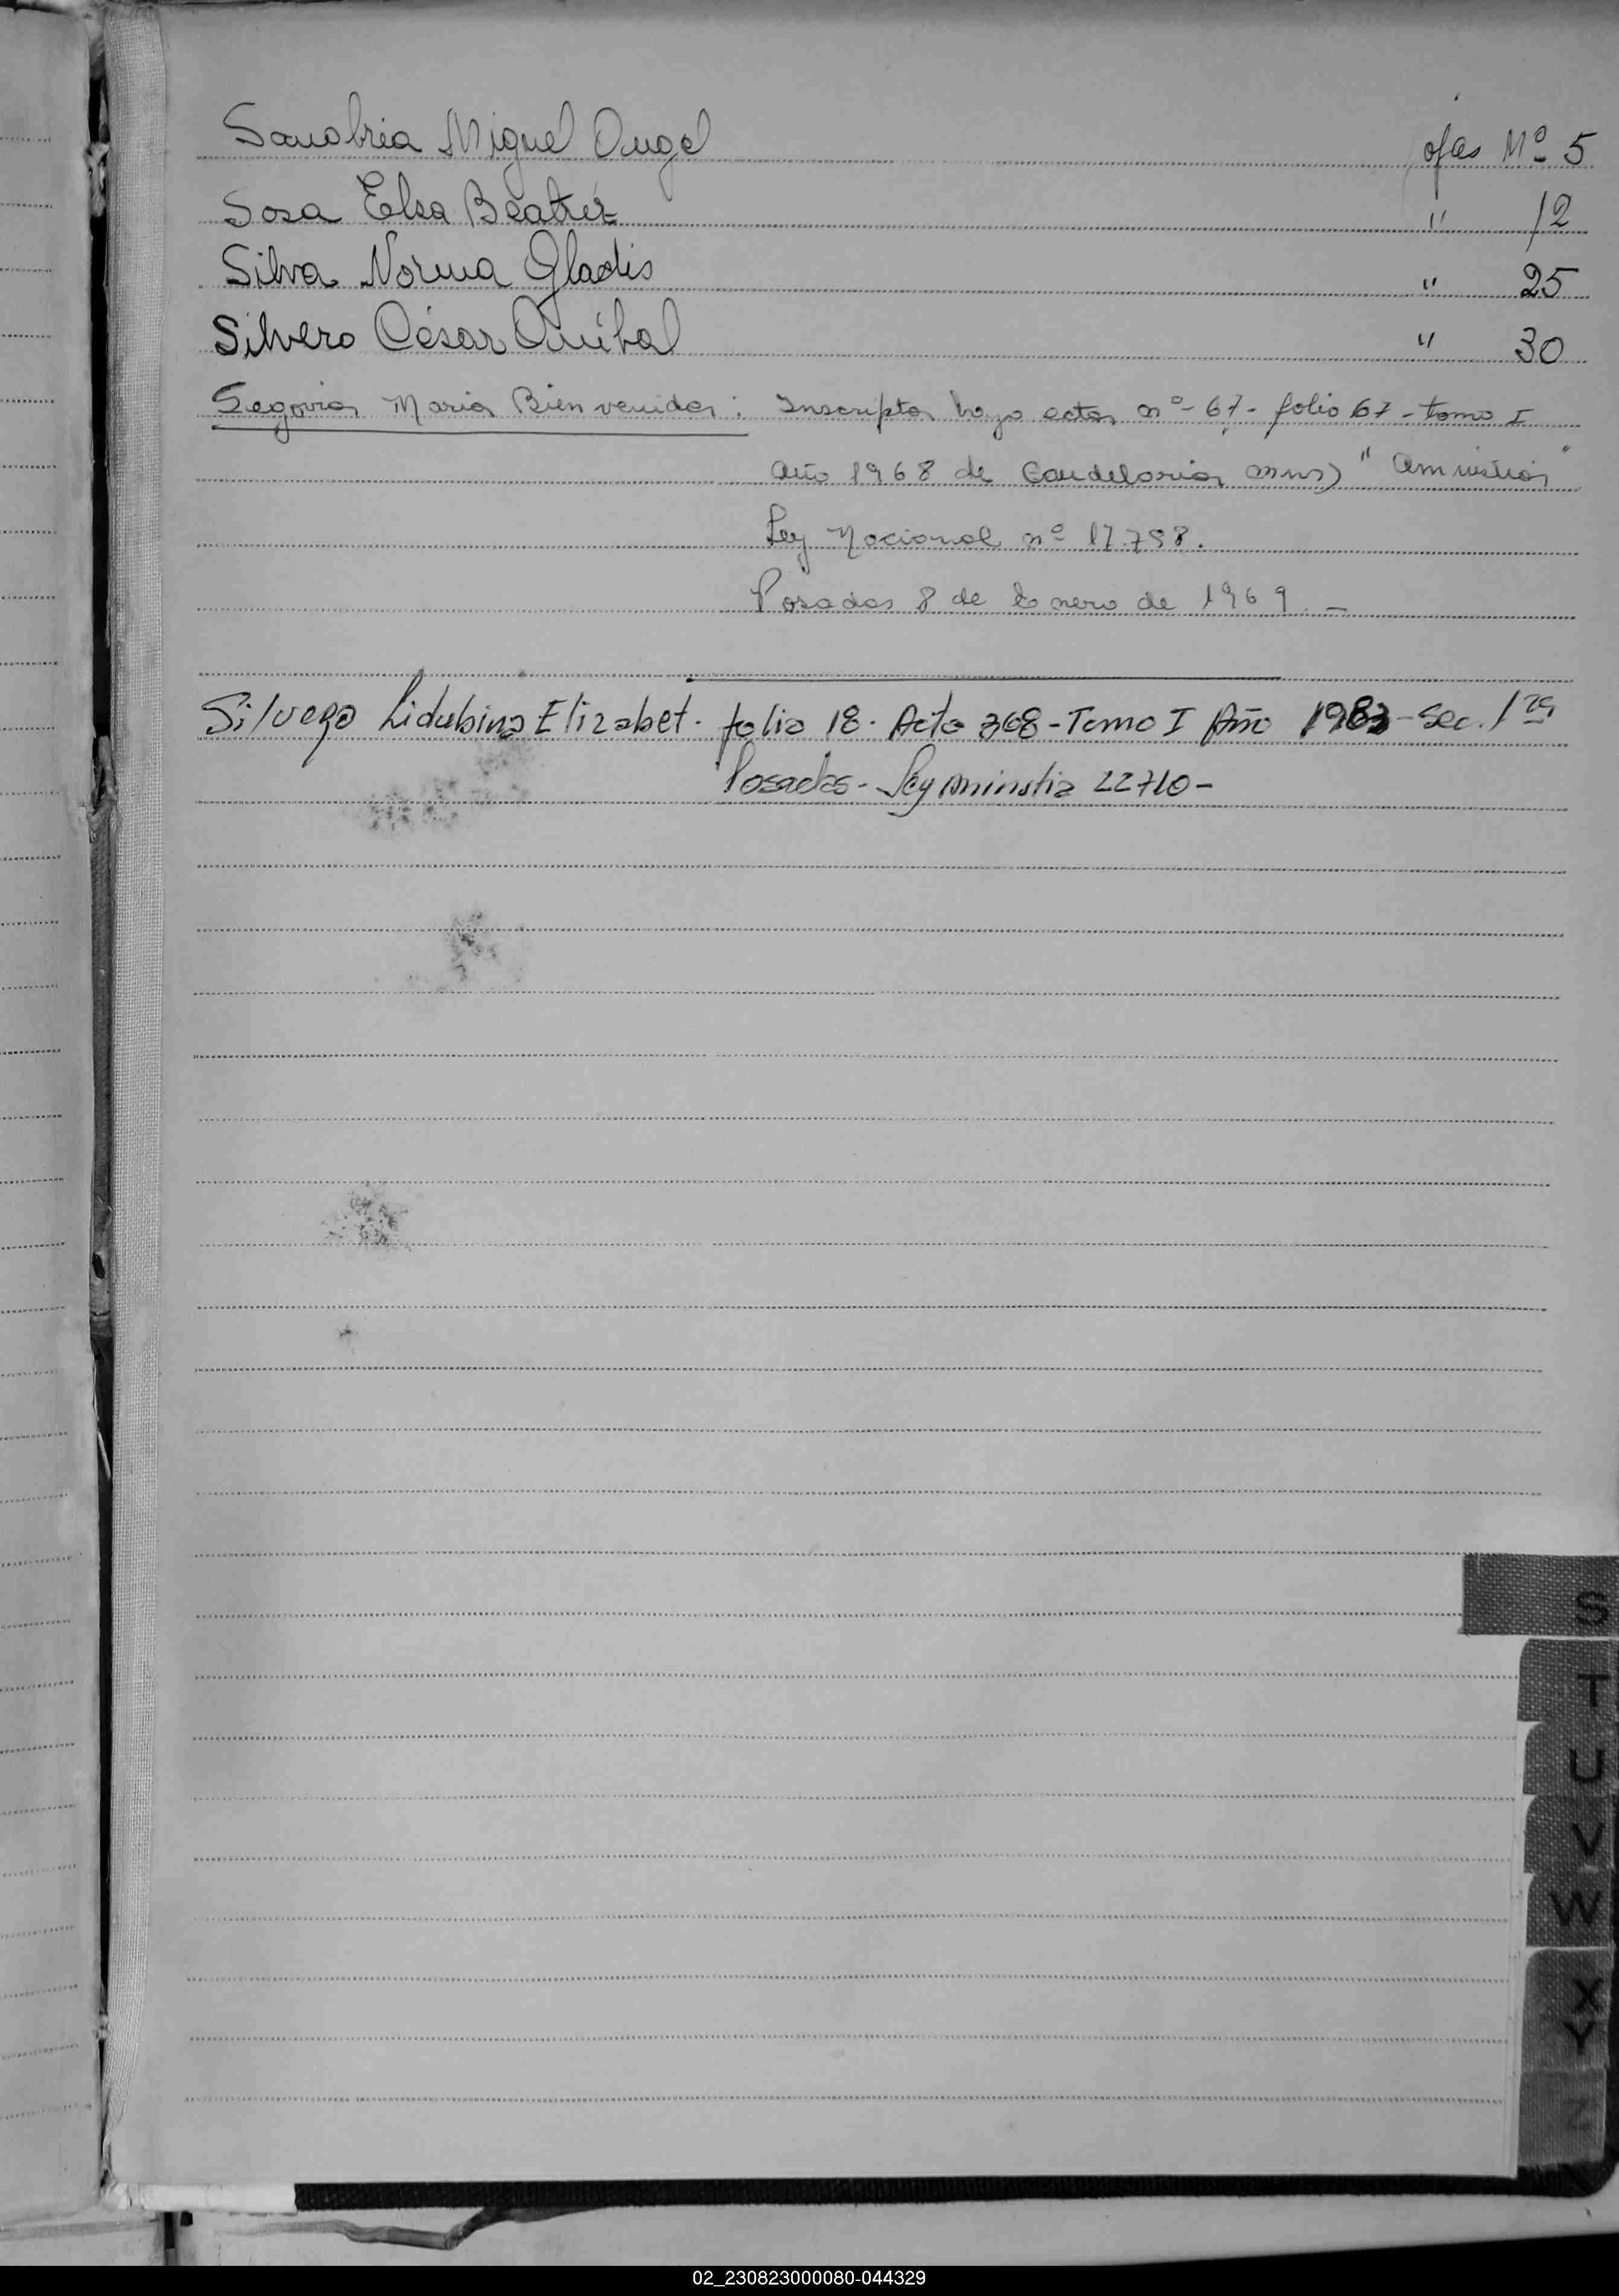 Sanabria Miguel Angel ojas Nº 5
Sosa Elsa Beatriz " 12
Silva Norma Gladis " 25
Silvero César Anibal " 30
Segovia Maria Bienvenida: Inscripta bajo acta nº 67 - folio 67 - tomo I
año 1968 de Candelaria, mns) "Amnistia"
Ley Nacional nº 17.798.
Posadas 8 de Enero de 1969. -
Silvero Lidubina Elizabet. folio 18. Acta 368 - Tomo I Año 1983 - Sec. 1ra
Posadas - Ley aminstia 22710 -
S
T
U
V
W
X
Y
Z
02_230823000080-044329